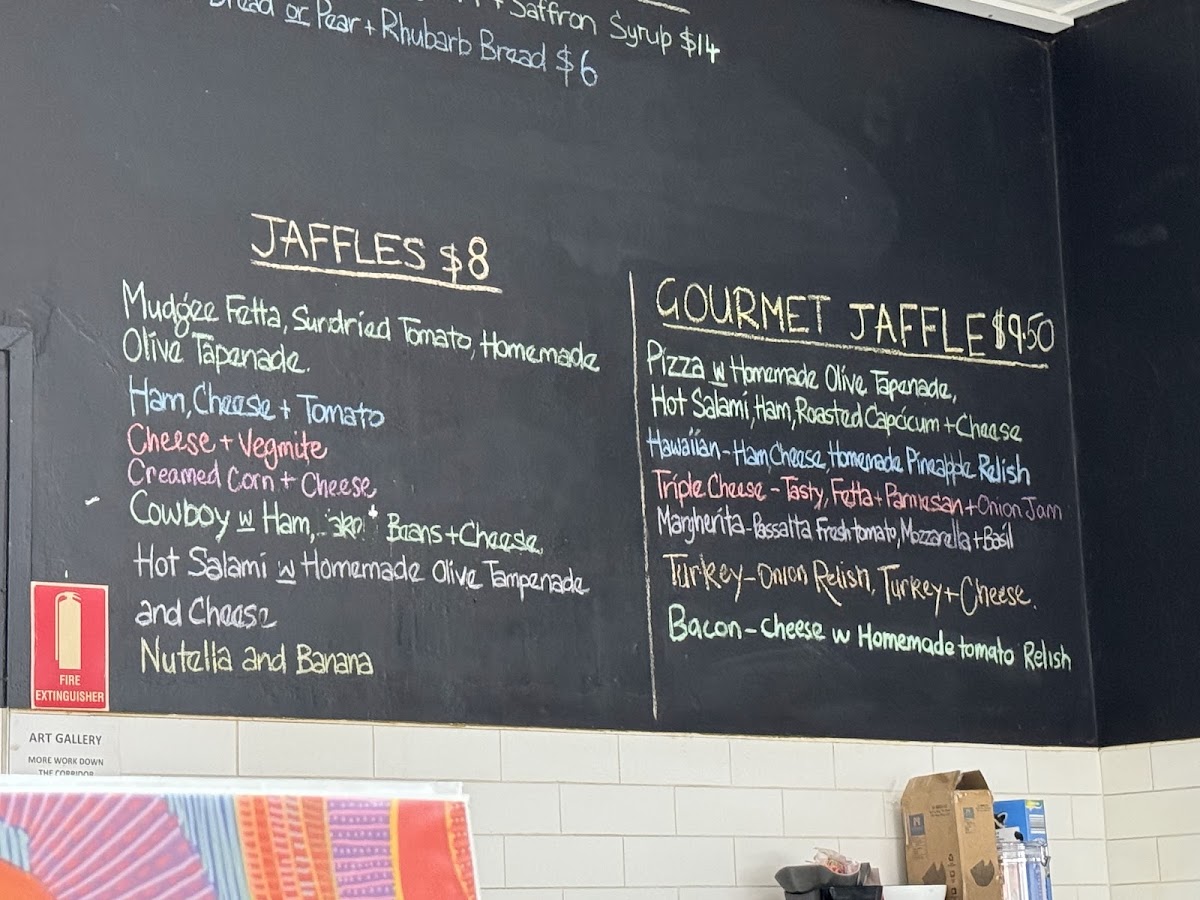 + Saffron Syrup $14
Bread or Pear + Rhubarb Bread $6
JAFFLES $8
Mudgee Fetta, Sundried Tomato, Homemade
Olive Tapenade.
Ham, Cheese + Tomato
Cheese + Vegmite
Creamed Corn + Cheese
Cowboy w Ham, Beans + Cheese
Hot Salami w Homemade Olive Tampenade
and Cheese
Nutella and Banana
GOURMET JAFFLE $9.50
Pizza w Homemade Olive Tapenade,
Hot Salami, Ham, Roasted Capcicum + Cheese
Hawaiian - Ham, Cheese, Homemade Pineapple Relish
Triple Cheese - Tasty, Fetta + Parmesan + Onion Jam
Margherita - Passatta Fresh tomato, Mozzarella + Basil
Turkey - Onion Relish, Turkey + Cheese.
Bacon - Cheese w Homemade tomato Relish
FIRE
EXTINGUISHER
ART GALLERY
MORE WORK DOWN
THE CORRIDOR